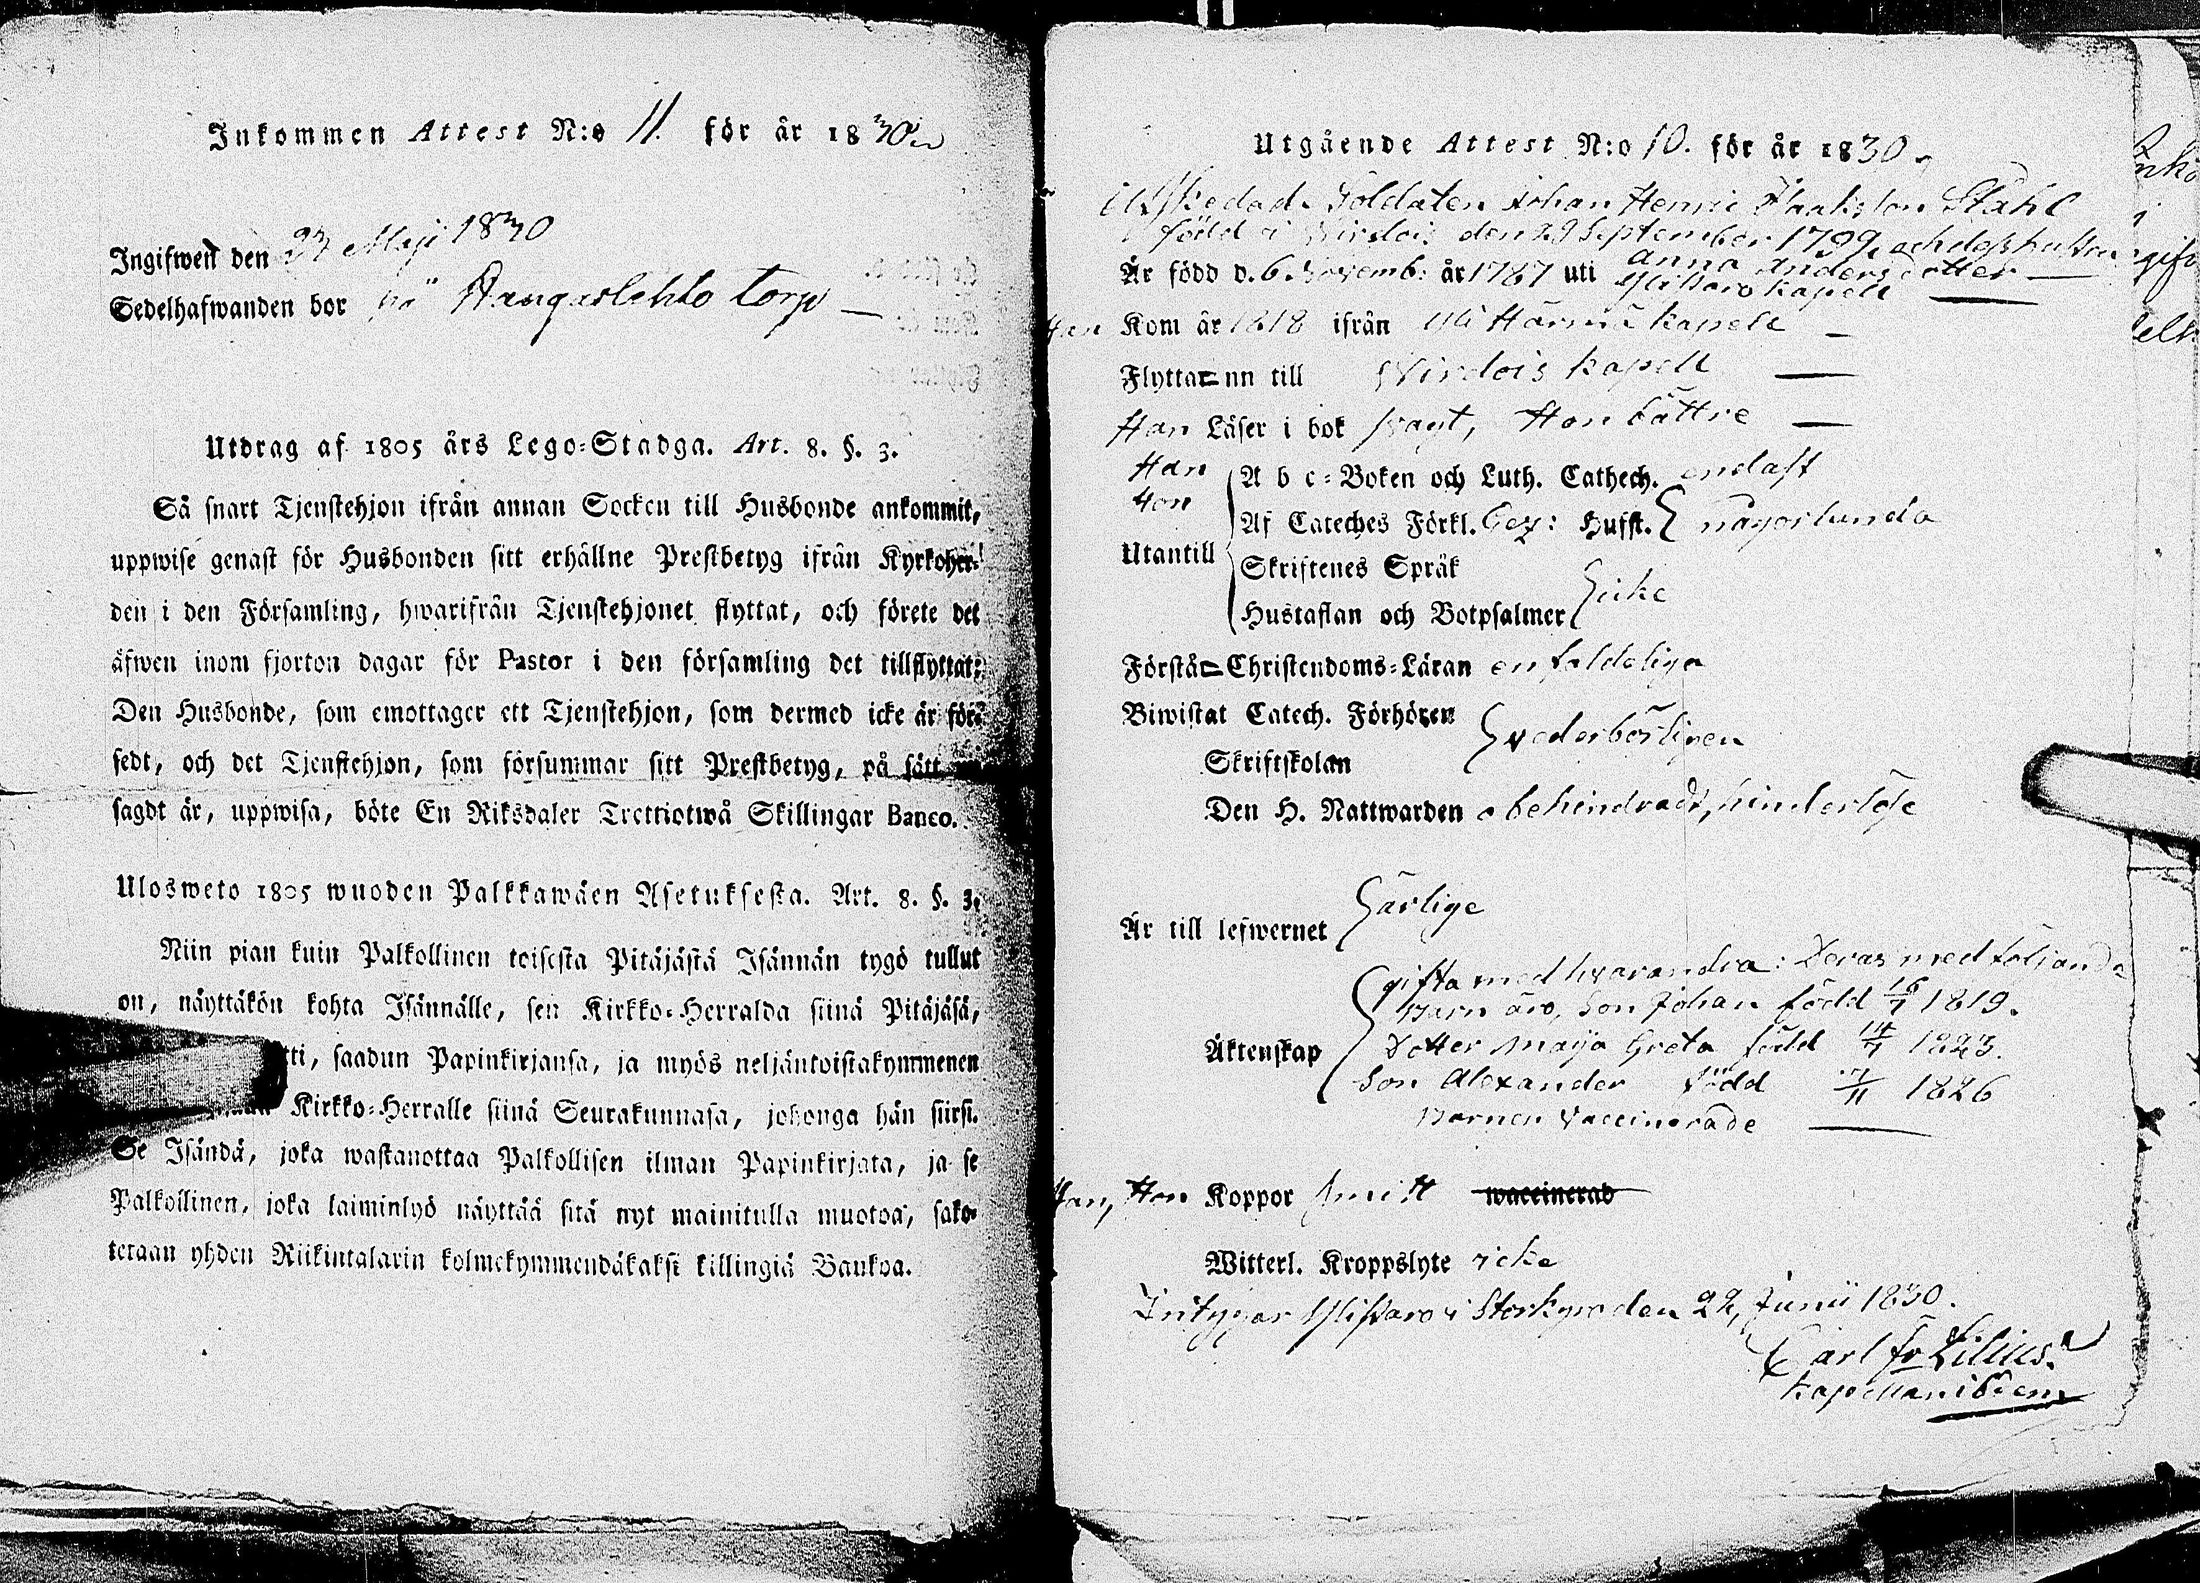 Inkommen Attest N:o 11. för år 1830
Ingifwen den 23 Maji 1830
Sedelhafwanden bor på Kangaslehto torp
Utdrag af 1805 års Lego-Stadga. Art. 8. §. 3.
Så snart Tjenstehjon ifrån annan Socken till Husbonde ankommit,
uppwise genast för Husbonden sitt erhållne Prestbetyg ifrån Kyrkoher-
den i den Församling, hwarifrån Tjenstehjonet flyttat, och förete det
äfwen inom fjorton dagar för Pastor i den församling det tillflyttat;
Den Husbonde, som emottager ett Tjenstehjon, som dermed icke är för-
sedt, och det Tjenstehjon, som försummar sitt Prestbetyg, på sätt
sagdt är, uppwisa, böte En Riksdaler Trettiotwå Skillingar Banco.
Ulosweto 1805 wuoden Palkkawäen Asetuksesta. Art. 8. §. 3.
Niin pian kuin Palkollinen toisesta Pitäjästä Isännän tygö tullut
on, näyttäkön kohta Isännälle, sen Kirkko-Herralda siinä Pitäjäsä,
tti, saadun Papinkirjansa, ja myös neljäntoistakymmenen
Kirkko-Herralle siinä Seurakunnasa, johonga hän siirsi.
Se Isändä, joka wastanottaa Palkollisen ilman Papinkirjata, ja se
Palkollinen, joka laiminlyö näyttää sitä nyt mainitulla muotoa, sako-
tetaan yhden Riikintalarin kolmekymmendäkaksi killingiä Bankoa.
Utgående Attest N:o 10. för år 1830.
Afskedad Soldaten Johan Henric Ståhl
född i Virdois den 29 September 1799, och dess hustru
Anna Andersdotter
Är född d. 6. Novemb: år 1787 uti Ylistaro kapell
Han Kom år 1818 ifrån Härmä kapell
Flytta nn till Virdois kapell
Han Läser i bok svagt, Hon bättre
Han A b c-Boken och Luth. Cathech. endast
Hon Af Cateches Förkl. Hufst. någorlunda
Utantill Skriftenes Språk
Hustaflan och Botpsalmer icke
Förstå Christendoms-Läran enfaldeliga
Biwistat Catech. Förhören vederbörligen
Skriftskolan
Den H. Nattwarden obehindradt, hinderlöse
Är till lefwernet ärlige
gifta med hvarandra: Deras medföljande
barn äro, Son Johan född 16/7 1819.
Äktenskap Dotter Maija Greta född 14/7 1823.
Son Alexander född 1826
Barnen Vaccinerade
Han, Hon Koppor haft waccinerad
Witterl. Kroppslyte icke
Intygar Ylistaro i Storkyro den 22 Junii 1830.
Carl Fr Lilius.
Kapellan ibidem